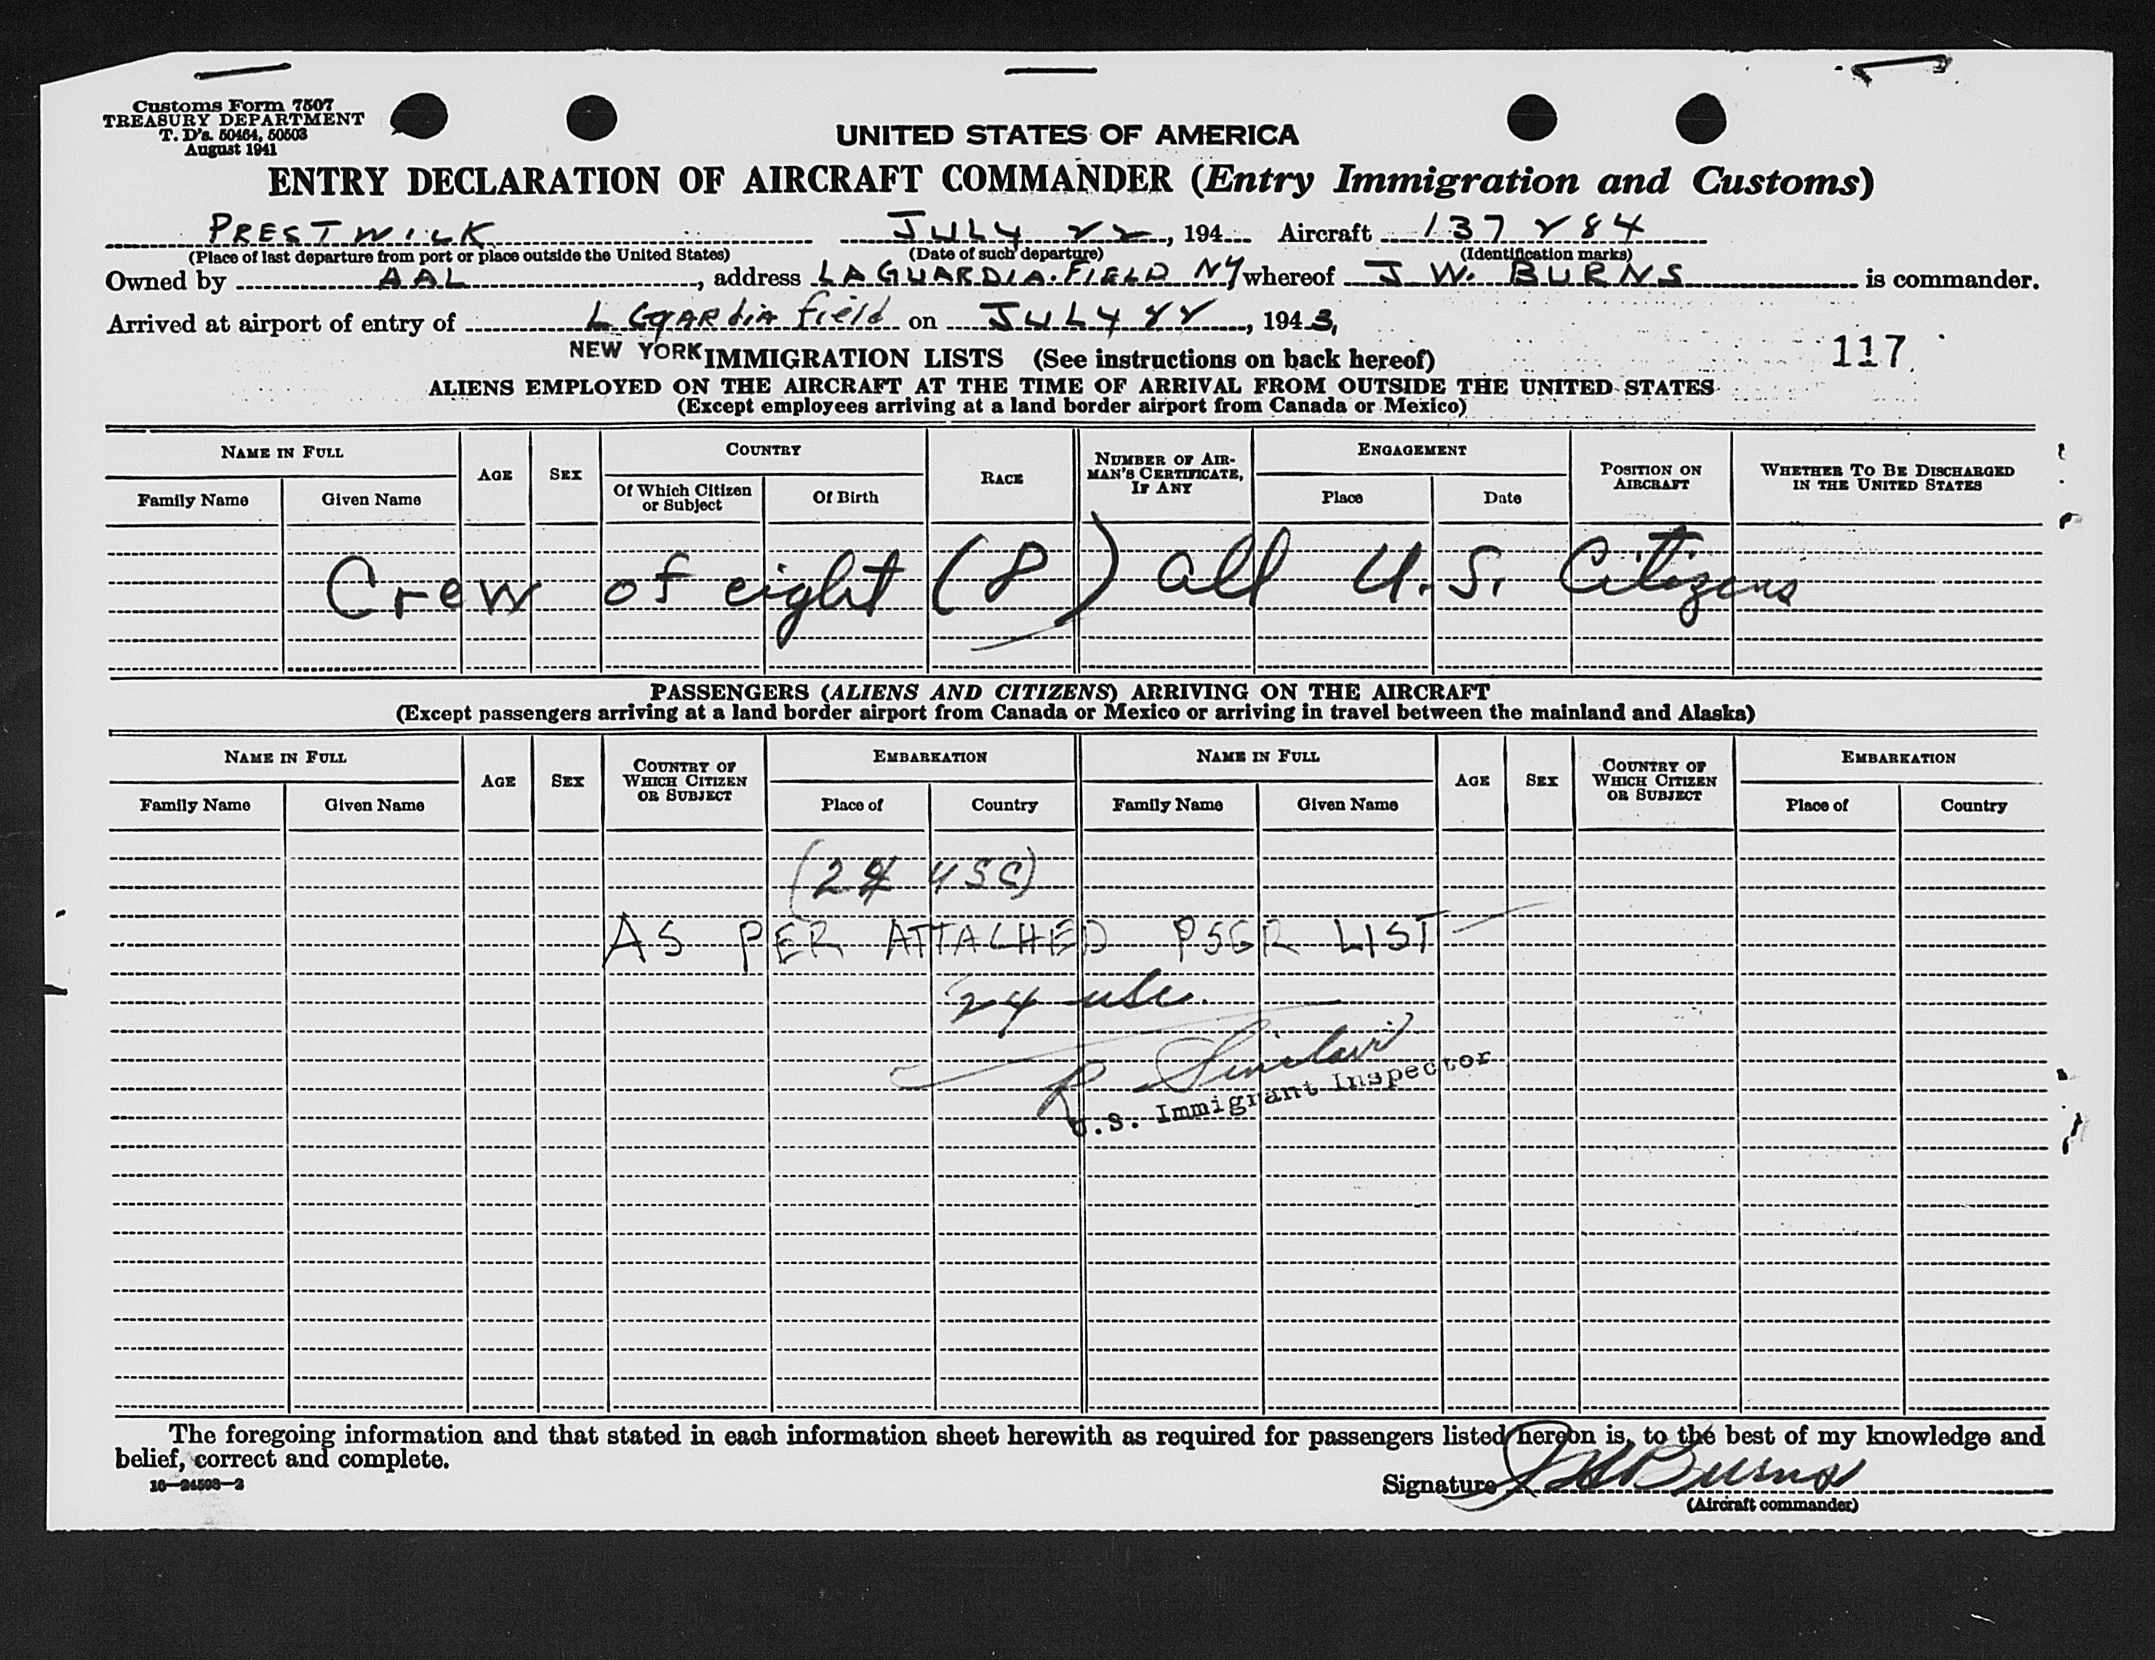 Customs Form 7507
TREASURY DEPARTMENT
T. D's. 50464, 50503
August 1941
UNITED STATES OF AMERICA
ENTRY DECLARATION OF AIRCRAFT COMMANDER (Entry Immigration and Customs)
PRESTWICK JULY 22, 194 Aircraft 137284
(Place of last departure from port or place outside the United States) (Date of such departure) (Identification marks)
Owned by AAL, address LA GUARDIA FIELD NY whereof J W. BURNS is commander.
Arrived at airport of entry of L GuARdiA field on JULY 22, 1943,
NEW YORK IMMIGRATION LISTS (See instructions on back hereof) 117
ALIENS EMPLOYED ON THE AIRCRAFT AT THE TIME OF ARRIVAL FROM OUTSIDE THE UNITED STATES
(Except employees arriving at a land border airport from Canada or Mexico)
NAME IN FULL AGE SEX COUNTRY RACE NUMBER OF AIRMAN'S CERTIFICATE, IF ANY ENGAGEMENT POSITION ON AIRCRAFT WHETHER TO BE DISCHARGED IN THE UNITED STATES
Family Name Given Name Of Which Citizen or Subject Of Birth Place Date
Crew of eight (8) all U.S. Citizens
PASSENGERS (ALIENS AND CITIZENS) ARRIVING ON THE AIRCRAFT
(Except passengers arriving at a land border airport from Canada or Mexico or arriving in travel between the mainland and Alaska)
NAME IN FULL AGE SEX COUNTRY OF WHICH CITIZEN OR SUBJECT EMBARKATION NAME IN FULL AGE SEX COUNTRY OF WHICH CITIZEN OR SUBJECT EMBARKATION
Family Name Given Name Place of Country Family Name Given Name Place of Country
(24 USC)
AS PER ATTACHED PSGR LIST
24 usc.
R Sinclair
U.S. Immigrant Inspector
The foregoing information and that stated in each information sheet herewith as required for passengers listed hereon is, to the best of my knowledge and
belief, correct and complete.
16—24508-2
Signature J W Burns
(Aircraft commander)